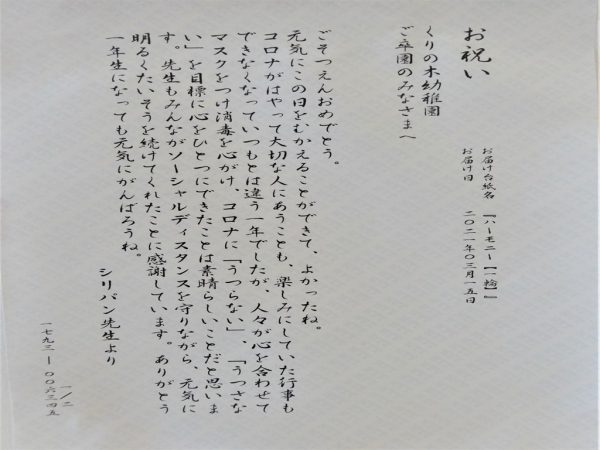 お祝い
お届け台紙名 『ハーモニー【一輪】』
お届け日 二〇二一年〇三月一五日
くりの木幼稚園
ご卒園のみなさまへ
ごそつえんおめでとう。
元気にこの日をむかえることができて、よかったね。
コロナがはやって大切な人にあうことも、楽しみにしていた行事も
できなくなっていつもとは違う一年でしたが、人々が心を合わせて
マスクをつけ消毒を心がけ、コロナに「うつらない」、「うつさな
い」を目標に心をひとつにできたことは素晴らしいことだと思いま
す。先生もみんながソーシャルディスタンスを守りながら、元気に
明るくたいそうを続けてくれたことに感謝しています。ありがとう
一年生になっても元気にがんばろうね。
シリバン先生より
一/二
一七九三ー〇〇六三四五